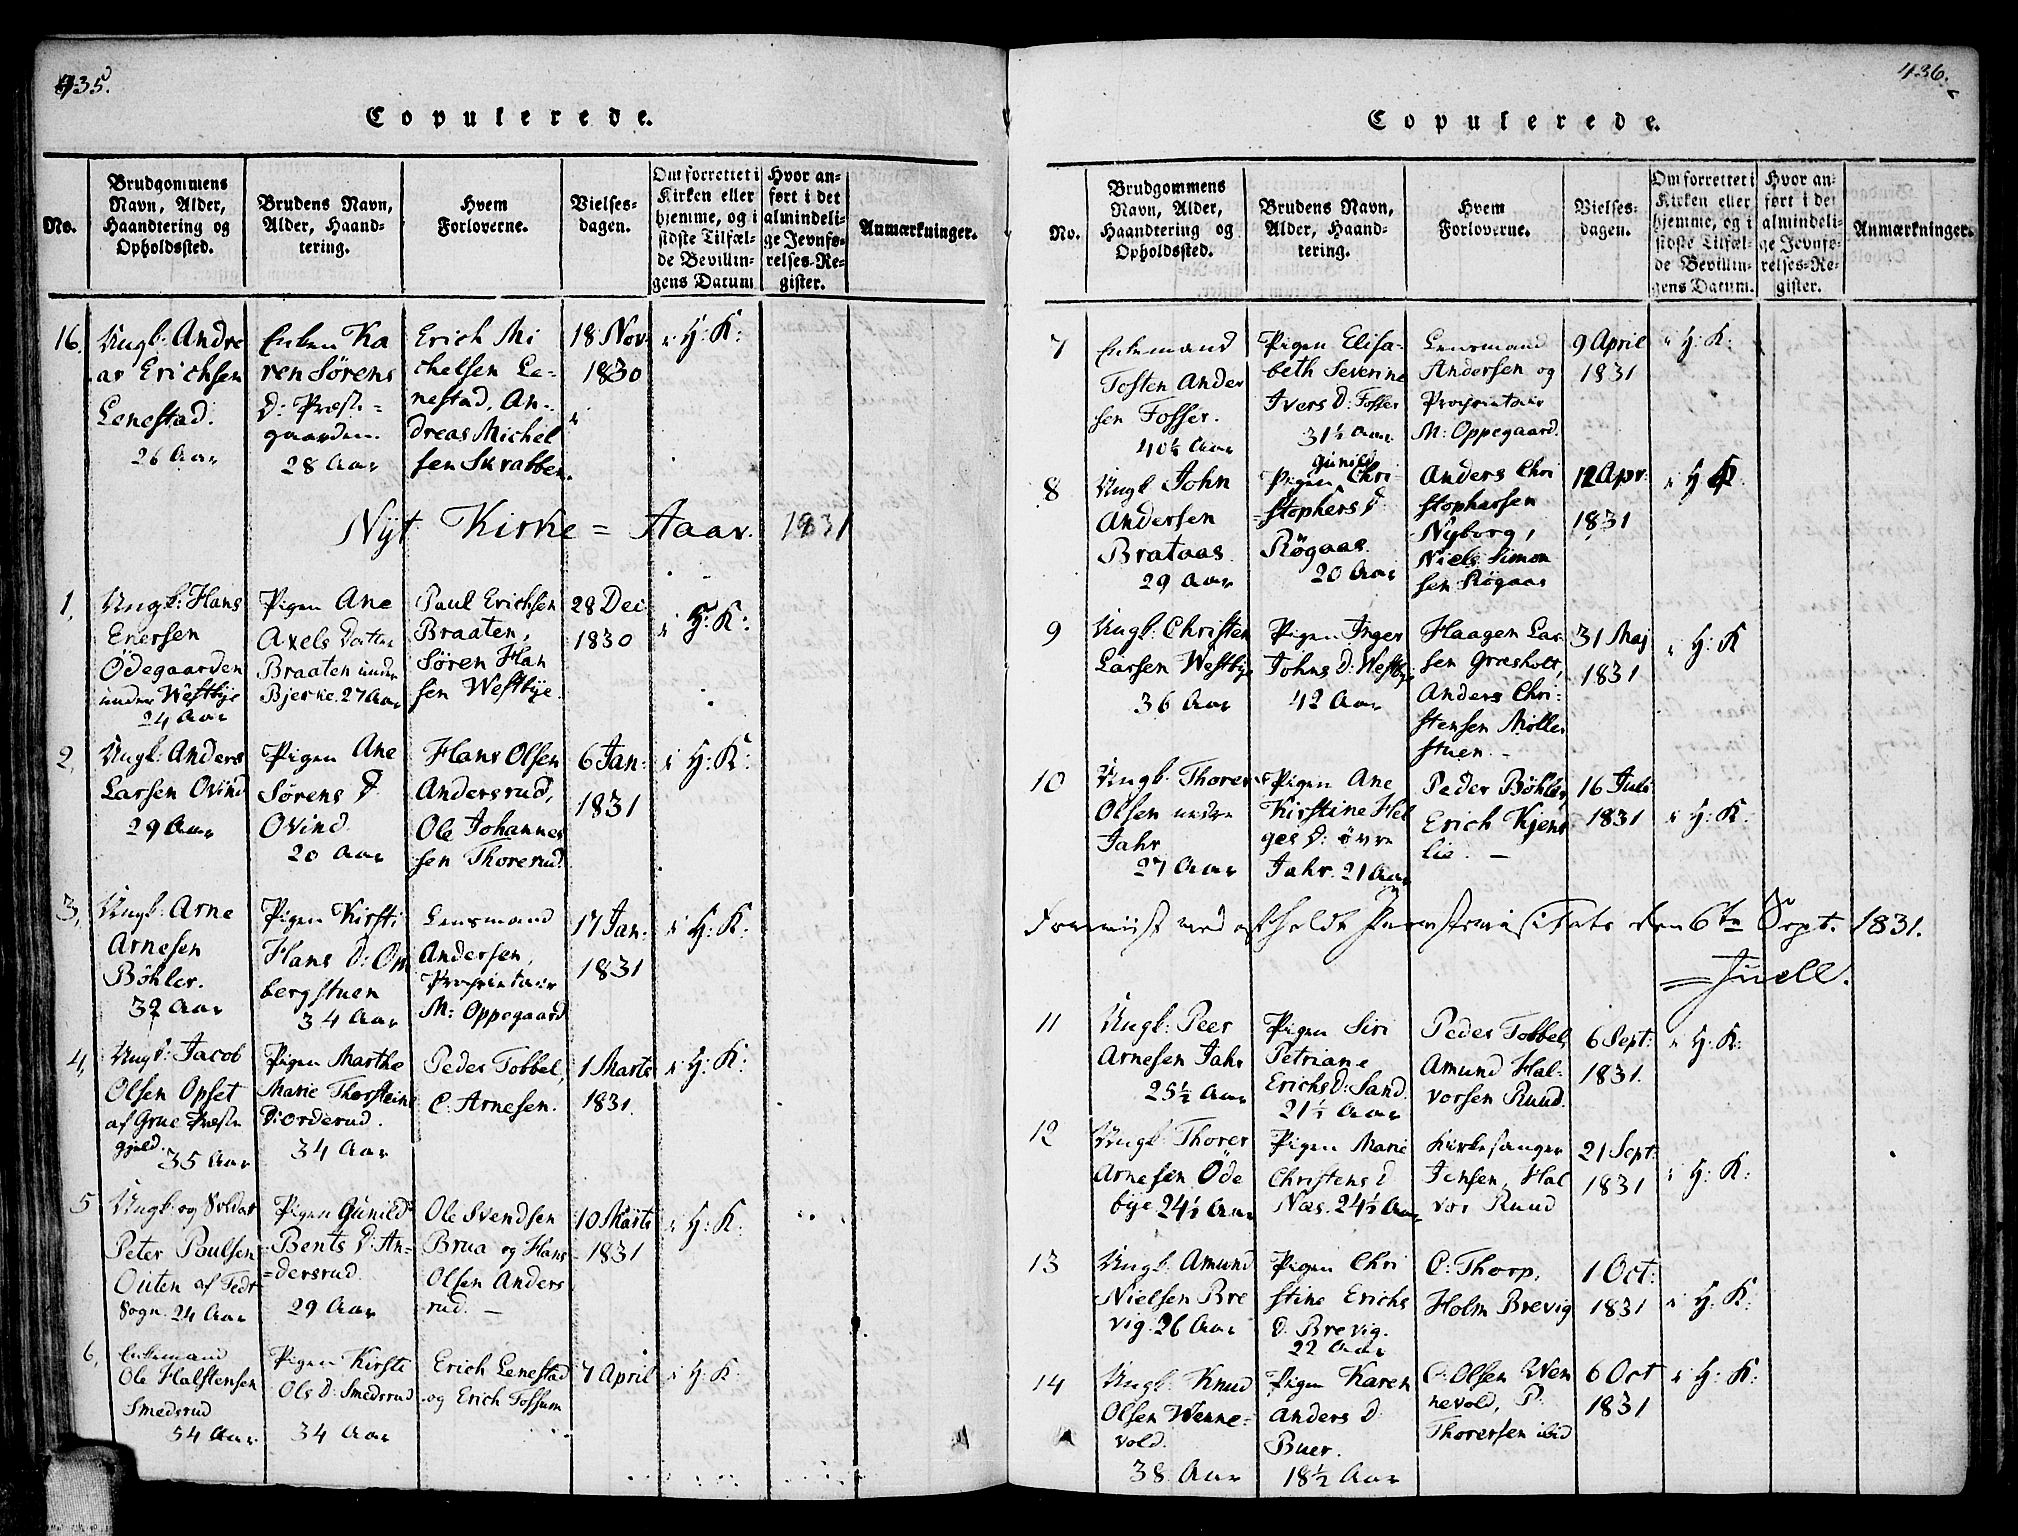 435.
Copulerede.
No.
Brudgommens
Navn, Alder,
Haandtering og
Opholdssted.
Brudens Navn,
Alder, Haand-
tering.
Hvem
Forloverne.
Vielses-
dagen.
Om forrettet i
Kirken eller
hjemme, og i
sidste Tilfæl-
de Bevillin-
gens Datum
Hvor an-
ført i det
almindeli-
ge Jevnfø-
relses-Re-
gister.
Anmærkninger.
16.
Ungk: Andre
as Erichsen
Lenestad.
26 Aar
Enken Ka
ren Sørens
D: Præste-
gaarden.
28 Aar
Erich Mi
chelsen Le-
nestad, An-
dreas Michel
sen Skrabben.
18 Nov.
1830
i H: K:
Nyt Kirke = Aaar. 1831
1.
Ungk: Hans
Enersen
Ödegaarden
under Westbye
24 Aar
Pigen Ane
Axels Datter
Braaten under
Bjerke. 27 Aar
Paul Erichsen
Braaten,
Søren Han
sen Westbye.
28 Dec:
1830
i H: K:
2,
Ungk: Anders
Larsen Ovind
29 Aar
Pigen Ane
Sørens D
Ovind.
20 Aar
Hans Olsen
Andersrud,
Ole Johannes
sen Thorerud.
6 Jan:
1831
i H: K:
3,
Ungk: Arne
Arnesen
Böhler.
32 Aar
Pigen Kirsti
Hans D: Om
bergstuen
34 Aar
Lensmand
Andersen,
Proprietair
M: Oppegaard
17 Jan:
1831
i H: K:
4,
Ungk: Jacob
Olsen Opset
af Grue Præste
gjeld.
35 Aar
Pigen Marthe
Marie Thorsteins
D: Orderud.
34 Aar
Peder Tobbel,
C: Arnesen.
1 Marts
1831.
i H: K:
5
Ungk: og Soldat
Peter Poulsen
Outen af Fedt
Sogn. 24 Aar
Pigen Gunild
Bents D: An-
=dersrud.
29 Aar
Ole Svendsen
Brua og Hans
Olsen Anders
rud. —
10 Marts
1831
i H: K:
6,
Enkemand
Ole Halstensen
Smedsrud
54 Aar
Pigen Kirsti
Ols D: Smedsrud
34 Aar
Erich Lenestad
og Erich Fossum
7 April
i H: K:
436.
Copulerede.
No.
Brudgommens
Navn, Alder,
Haandtering og
Opholdssted.
Brudens Navn,
Alder, Haand-
tering.
Hvem
Forloverne.
Vielses-
dagen.
Om forrettet i
Kirken eller
hjemme, og i
sidste Tilfæl-
de Bevillin-
gens Datum.
Hvor an-
ført i det
almindeli-
ge Jevnfø-
relses-Re-
gister.
Anmærkninger.
7
Enkemand
Tosten Ander
sen Fosser.
40½ Aar
Pigen Elisa-
beth Severine
Ivers D: Fosser
31½ Aar.
Lensmand
Andersen og
Proprietair
M: Oppegaard.
9 April
1831
i H: K:
8
Ungk John
Andersen
Brataas.
29 Aar
Gunild
Pigen Chri
=stophers D
Rögaas.
20 Aar
Anders Chri
stophersen
Nyborg,
Niels Simon
sen Rögaas
12 Apr:
1831
i H K:
9
Ungk: Christen
Larsen Westbye
36 Aar
Pigen Inger
Johns D: Westbye
42 Aar
Haagen Lar-
sen Græsholt,
Anders Chri-
stensen Møller
stuen. —
31 Maj
1831
i H: K
10
Ungk. Thorer
Olsen nedre
Jahr
27 Aar
Pigen Ane
Kirstine Hel
ges D: øvre
Jahr. 21 Aar
Peder Böhler,
Erich Kjens
lie. —
16 Juli
1831
i H: K:
6te Sept. 1831.
Juell.
11
Ungk: Peer
Arnesen Jahr
25½ Aar
Pigen Siri
Petriane
Erichs D: Sand.
21½ Aar
Peder Tobbel,
Amund Hal-
vorsen Ruud.
6 Sept:
1831.
i H: K:
12
Ungk: Thorer
Arnesen Öde
bye 24½ Aar
Pigen Marie
Christens D
Næs. 24½ Aar
Kirkesanger
Jensen, Hal
vor Ruud
21 Sept:
1831
i H: K:
13
Ungk. Amund
Nielsen Bre
vig. 26 Aar
Pigen Chri
stine Erichs
D. Brevig.
22 Aar
C: Thorp,
Holm Brevig
1 Oct:
1831
i H: K:
14
Ungk: Knud
Olsen Wenne-
vold.
38 Aar
Pigen Karen
Anders D
Buer.
18½ Aar
C: Olsen Wen
nevold, P:
Thorersen ibid
6 Oct
1831
i H: K: